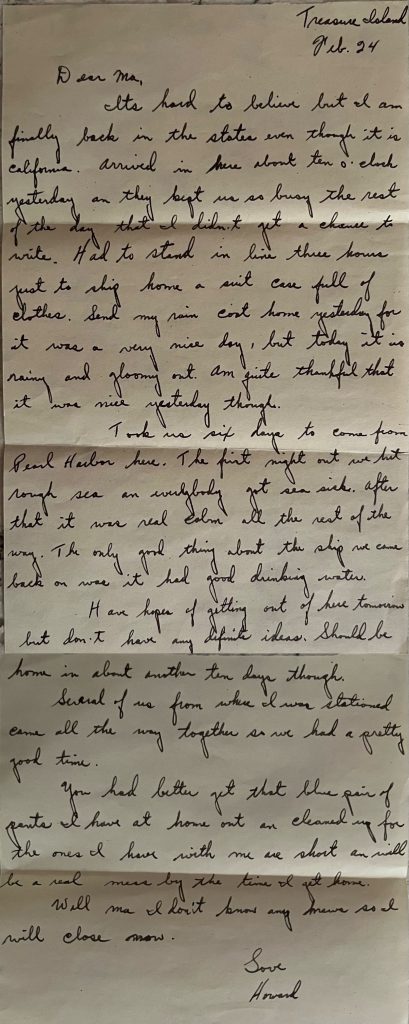 Treasure Island
Feb. 24
Dear Ma,
Its hard to believe but I am
finally back in the states even though it is
California. Arrived in here about ten o'clock
yesterday an they kept us so busy the rest
of the day that I didn't get a chance to
write. Had to stand in line three hours
just to ship home a suit case full of
clothes. Send my rain coat home yesterday for
it was a very nice day, but today it is
rainy and gloomy out. Am quite thankful that
it was nice yesterday though.
Took us six days to come from
Pearl Harbor here. The first night out we hit
rough sea an everybody got sea sick. After
that it was real calm all the rest of the
way. The only good thing about the ship we came
back on was it had good drinking water.
Have hopes of getting out of here tomorrow
but don't have any definite ideas. Should be
home in about another ten days though.
Several of us from where I was stationed
came all the way together so we had a pretty
good time.
You had better get that blue pair of
pants I have at home out an cleaned up for
the ones I have with me are short an will
be a real mess by the time I get home.
Well ma I don't know any news so I
will close now.
Love
Howard